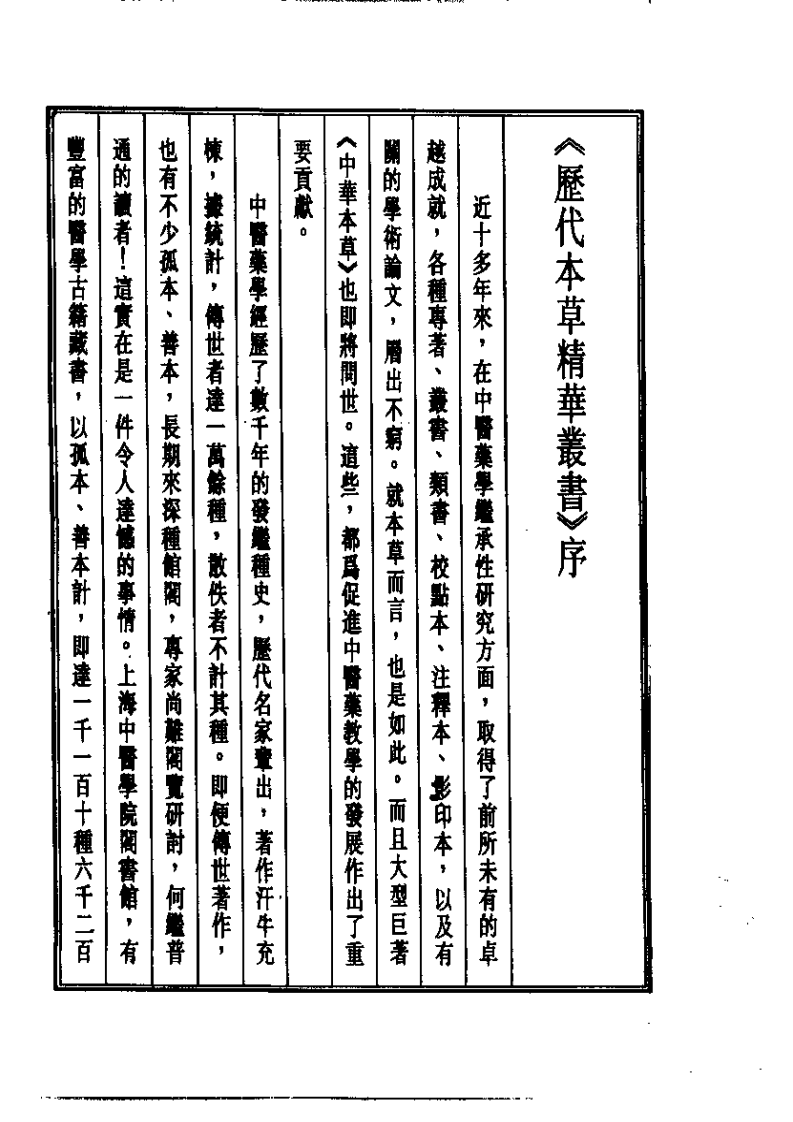 《歷代本草精華叢書》序
近十多年來，在中醫藥學繼承性研究方面，取得了前所未有的卓
越成就，各種專著、叢書、類書、校點本、注釋本、影印本，以及有
關的學術論文，層出不窮。就本草而言，也是如此。而且大型巨著
《中華本草》也即將問世。這些，都爲促進中醫藥教學的發展作出了重
要貢獻。
中醫藥學經歷了數千年的發繼種史，歷代名家輩出，著作汗牛充
棟，據統計，傳世者達一萬餘種，散佚者不計其種。即便傳世著作，
也有不少孤本、善本，長期來深種館閣，專家尚難閣覽研討，何繼普
通的讀者！這實在是一件令人達憾的事情。上海中醫學院閣書館，有
豐富的醫學古籍藏書，以孤本、善本計，即達一千一百十種六千二百